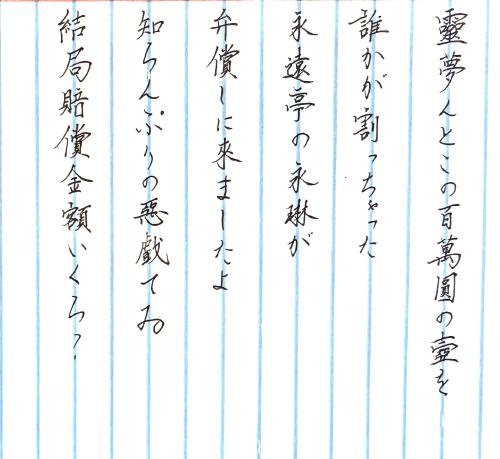 靈夢んとこの百萬圓の壺を
誰かが割っちゃった
永遠亭の永琳が
弁償しに來ましたよ
知らんぷりの惡戲てゐ
結局賠償金額いくら?